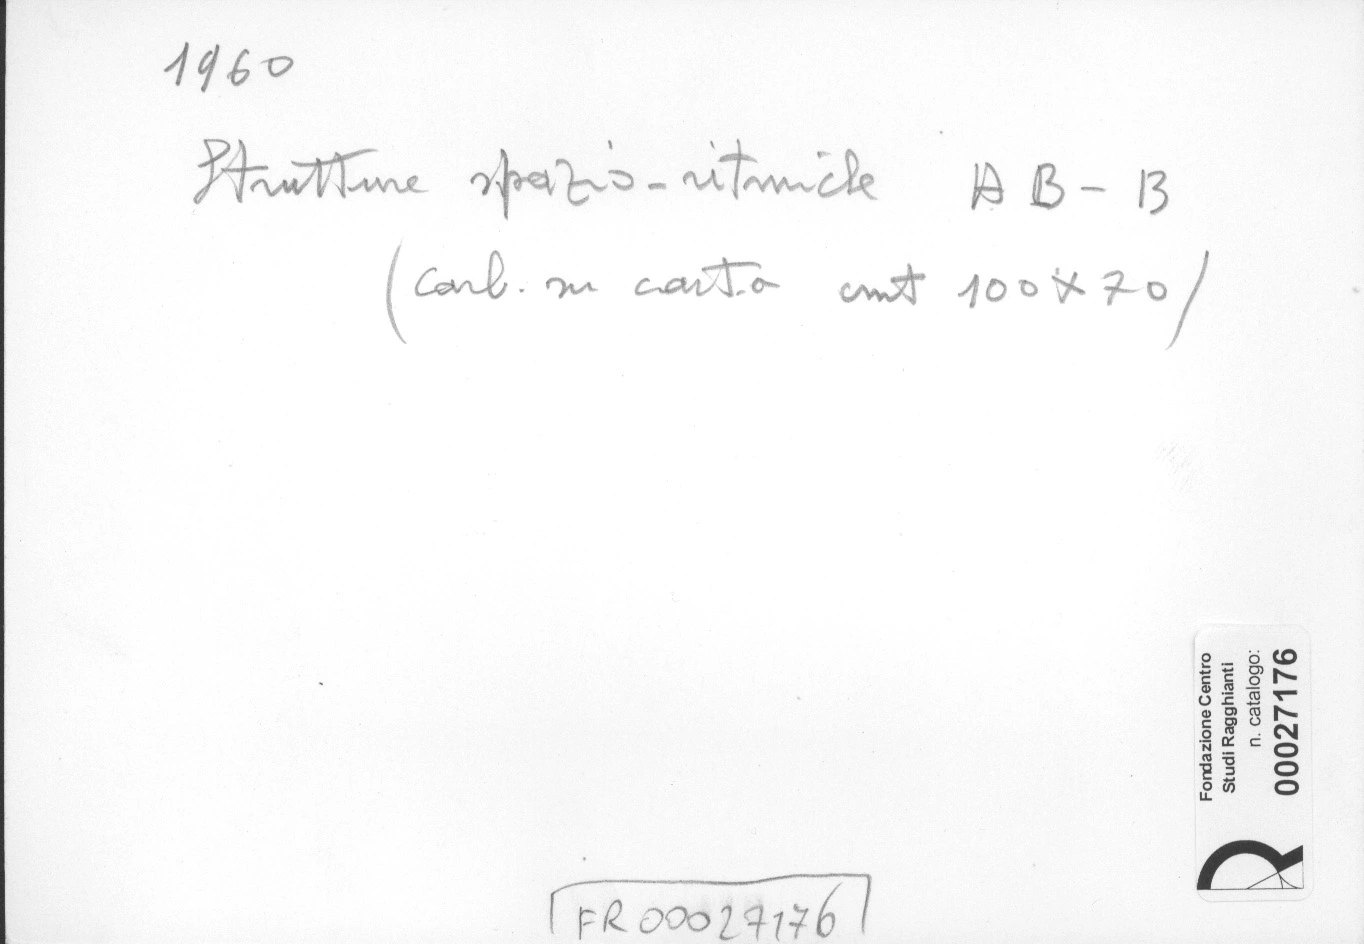 1960
Strutture spazio-ritmiche AB-B
(carb. su carta cmt 100x70)
Fondazione Centro
Studi Ragghianti
n. catalogo:
00027176
FR00027176